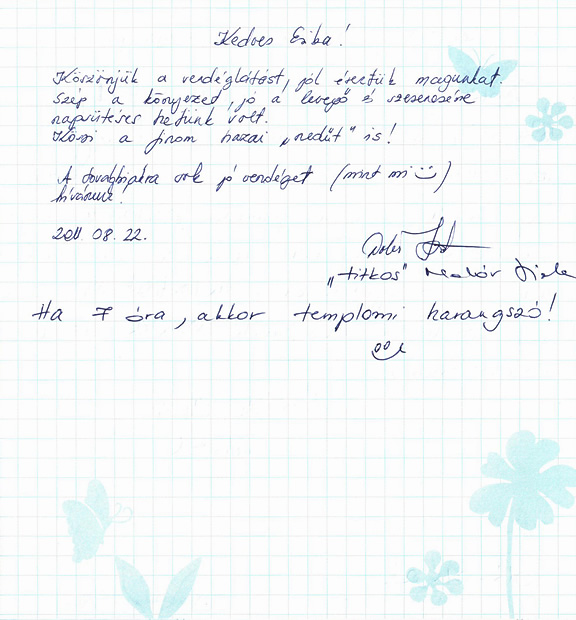 Kedves Csiba!
Köszönjük a vendéglátást, jól éreztük magunkat.
Szép a környezet, jó a levegő és szerencsére
napsütéses hetünk volt.
Köszi a finom hazai „nedűt" is!
A továbbiakra sok jó vendéget (mint mi :))
kívánunk!
2011 08. 22.
„titkos"
Ha 7 óra, akkor templomi harangszó!